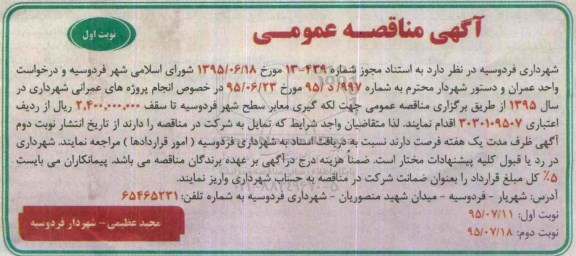 آگهی مناقصه عمومی
نوبت اول
شهرداری فردوسیه در نظر دارد به استناد مجوز شماره ۴۳۹-۱۳ مورخ ۱۳۹۵/۰۶/۱۸ شورای اسلامی شهر فردوسیه و درخواست
واحد عمران و دستور شهردار محترم به شماره ۹۹۷/ د /۹۵ مورخ ۹۵/۰۶/۲۳ در خصوص انجام پروژه های عمرانی شهرداری در
سال ۱۳۹۵ از طریق برگزاری مناقصه عمومی جهت لکه گیری معابر سطح شهر فردوسیه تا سقف ۲,۴۰۰,۰۰۰,۰۰۰ ریال از ردیف
اعتباری ۳۰۳۰۱۰۹۵۰۷ اقدام نمایند. لذا متقاضیان واجد شرایط که تمایل به شرکت در مناقصه را دارند از تاریخ انتشار نوبت دوم
آگهی ظرف مدت یک هفته فرصت دارند نسبت به دریافت اسناد به شهرداری فردوسیه ( امور قراردادها ) مراجعه نمایند. شهرداری
در رد یا قبول کلیه پیشنهادات مختار است. ضمناً هزینه درج آگهی بر عهده برندگان مناقصه می باشد. پیمانکاران می بایست
۵٪ کل مبلغ قرارداد را بعنوان ضمانت شرکت در مناقصه به حساب شهرداری واریز نمایند.
آدرس: شهریار - فردوسیه - میدان شهید منصوریان - شهرداری فردوسیه به شماره تلفن: ۶۵۴۶۵۲۳۱
نوبت اول: ۹۵/۰۷/۱۱
نوبت دوم: ۹۵/۰۷/۱۸
مجید عظیمی - شهردار فردوسیه